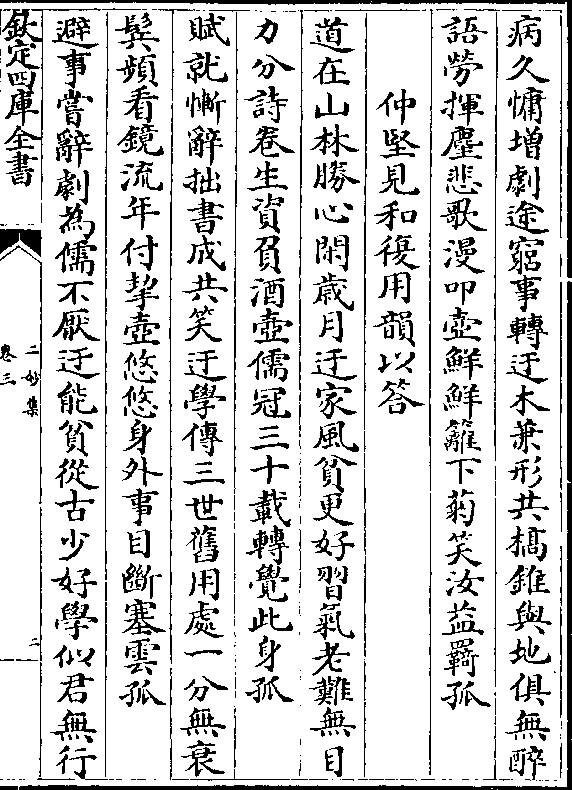 病久慵增劇途窮事轉迂木兼形共槁錐與地俱無醉
語勞揮麈悲歌漫叩壺鮮鮮籬下菊笑汝益羇孤
仲堅見和復用韻以答
道在山林勝心閑歲月迂家風貧更好習氣老難無目
力分詩卷生資負酒壺儒冠三十載轉覺此身孤
賦就慚辭拙書成共笑迂學傳三世舊用處一分無衰
鬂頻看鏡流年付挈壺悠悠身外事目斷塞雲孤
避事嘗辭劇為儒不厭迂能貧從古少好學似君無行
欽定四庫全書
二妙集
卷三
二